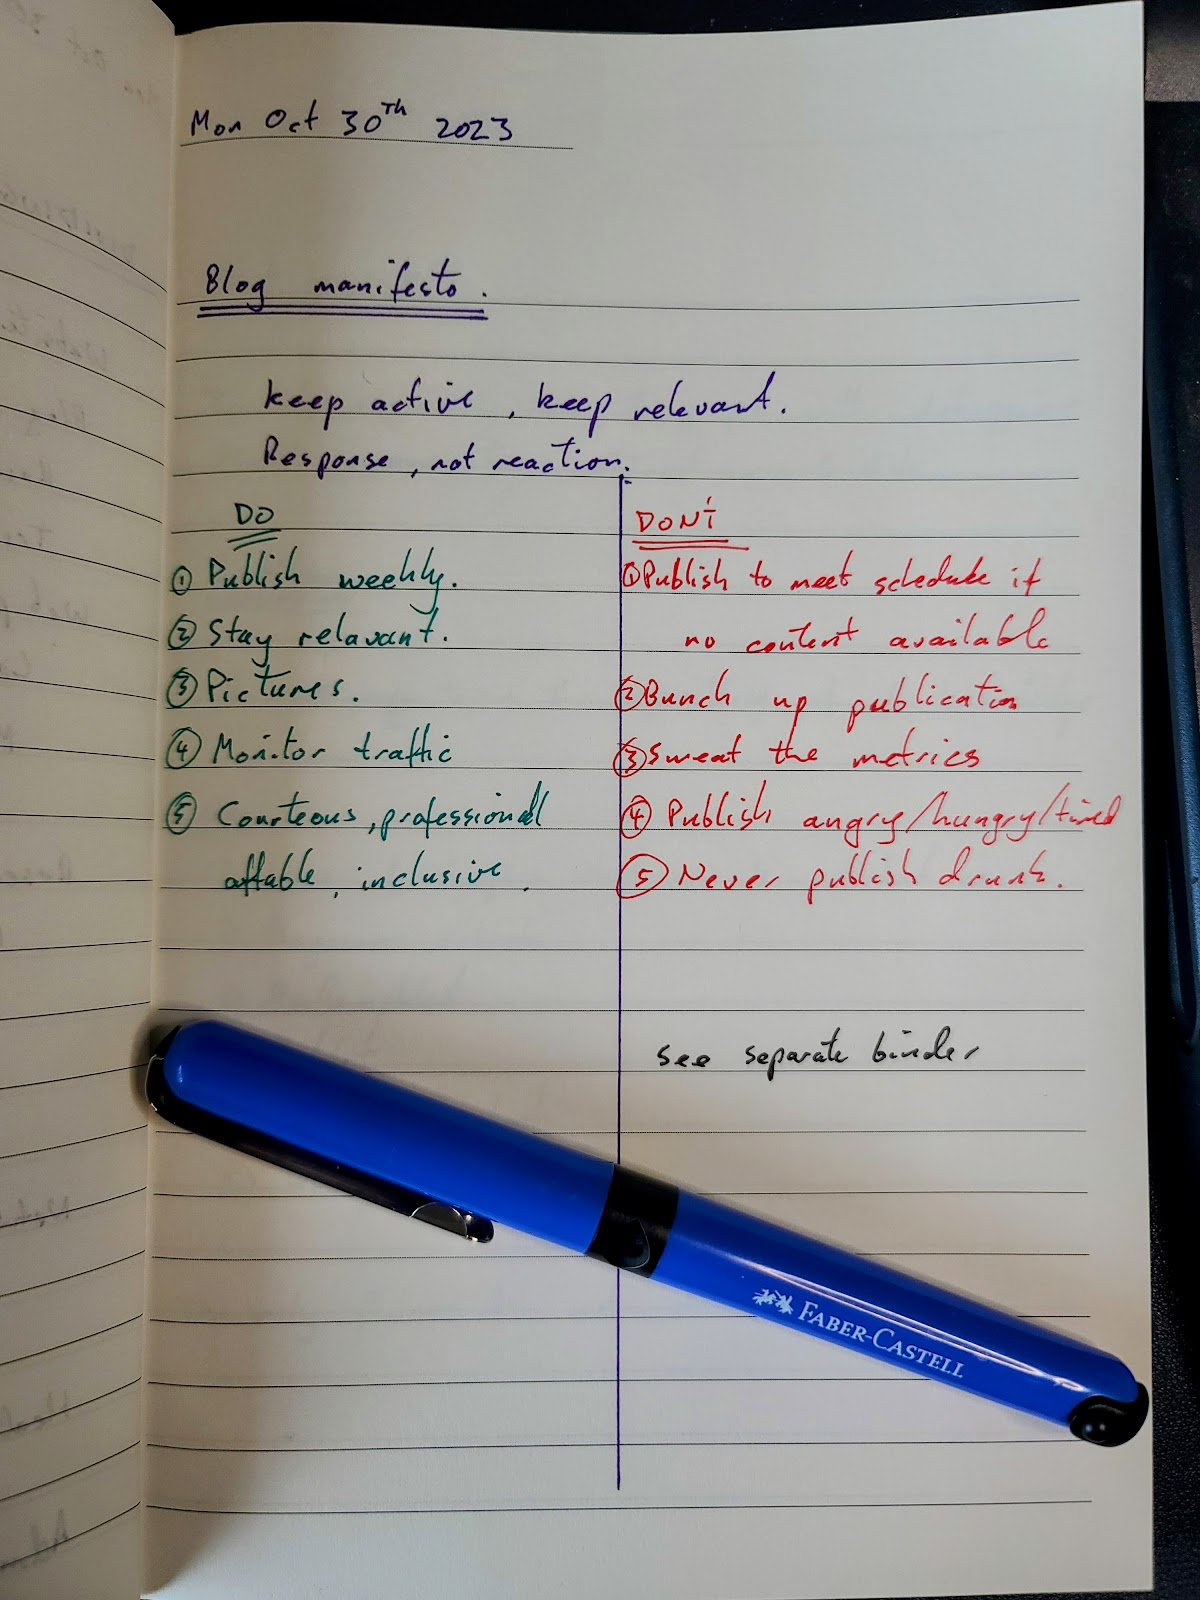 Mon Oct 30Th 2023
Blog manifesto.
keep active, keep relevant.
Response, not reaction.
DO
① Publish weekly.
② Stay relavant.
③ Pictures.
④ Monitor traffic
⑤ Courteous, professional
affable, inclusive.
DON'T
① Publish to meet schedule if
no content available
② Bunch up publication
③ Sweat the metrics
④ Publish angry/hungry/tired
⑤ Never publish drunk.
see separate binder
FABER-CASTELL